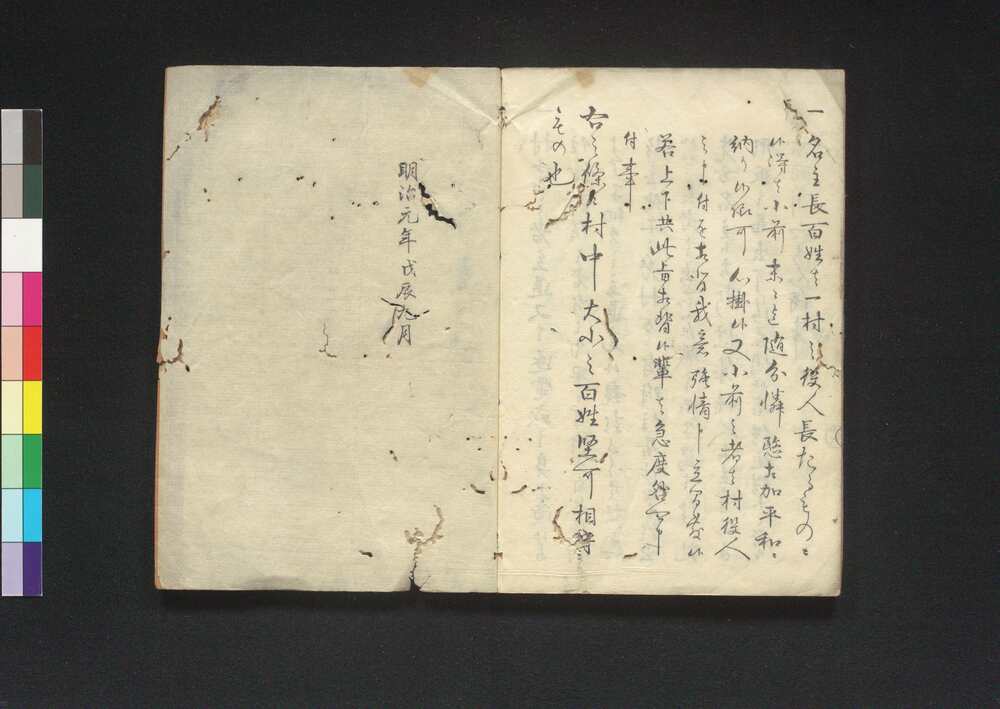 一名主長百姓は一村之役人長たるものニ
候得は小前末々迄随分憐愍を加平和ニ
納り候様可心掛候又小前之者は村役人
之申付を相背我意強情申立間敷候
若上下共此旨相背候輩は急度
付事
右之条々村中大小之百姓堅可相守
もの也
明治元年戊辰九月